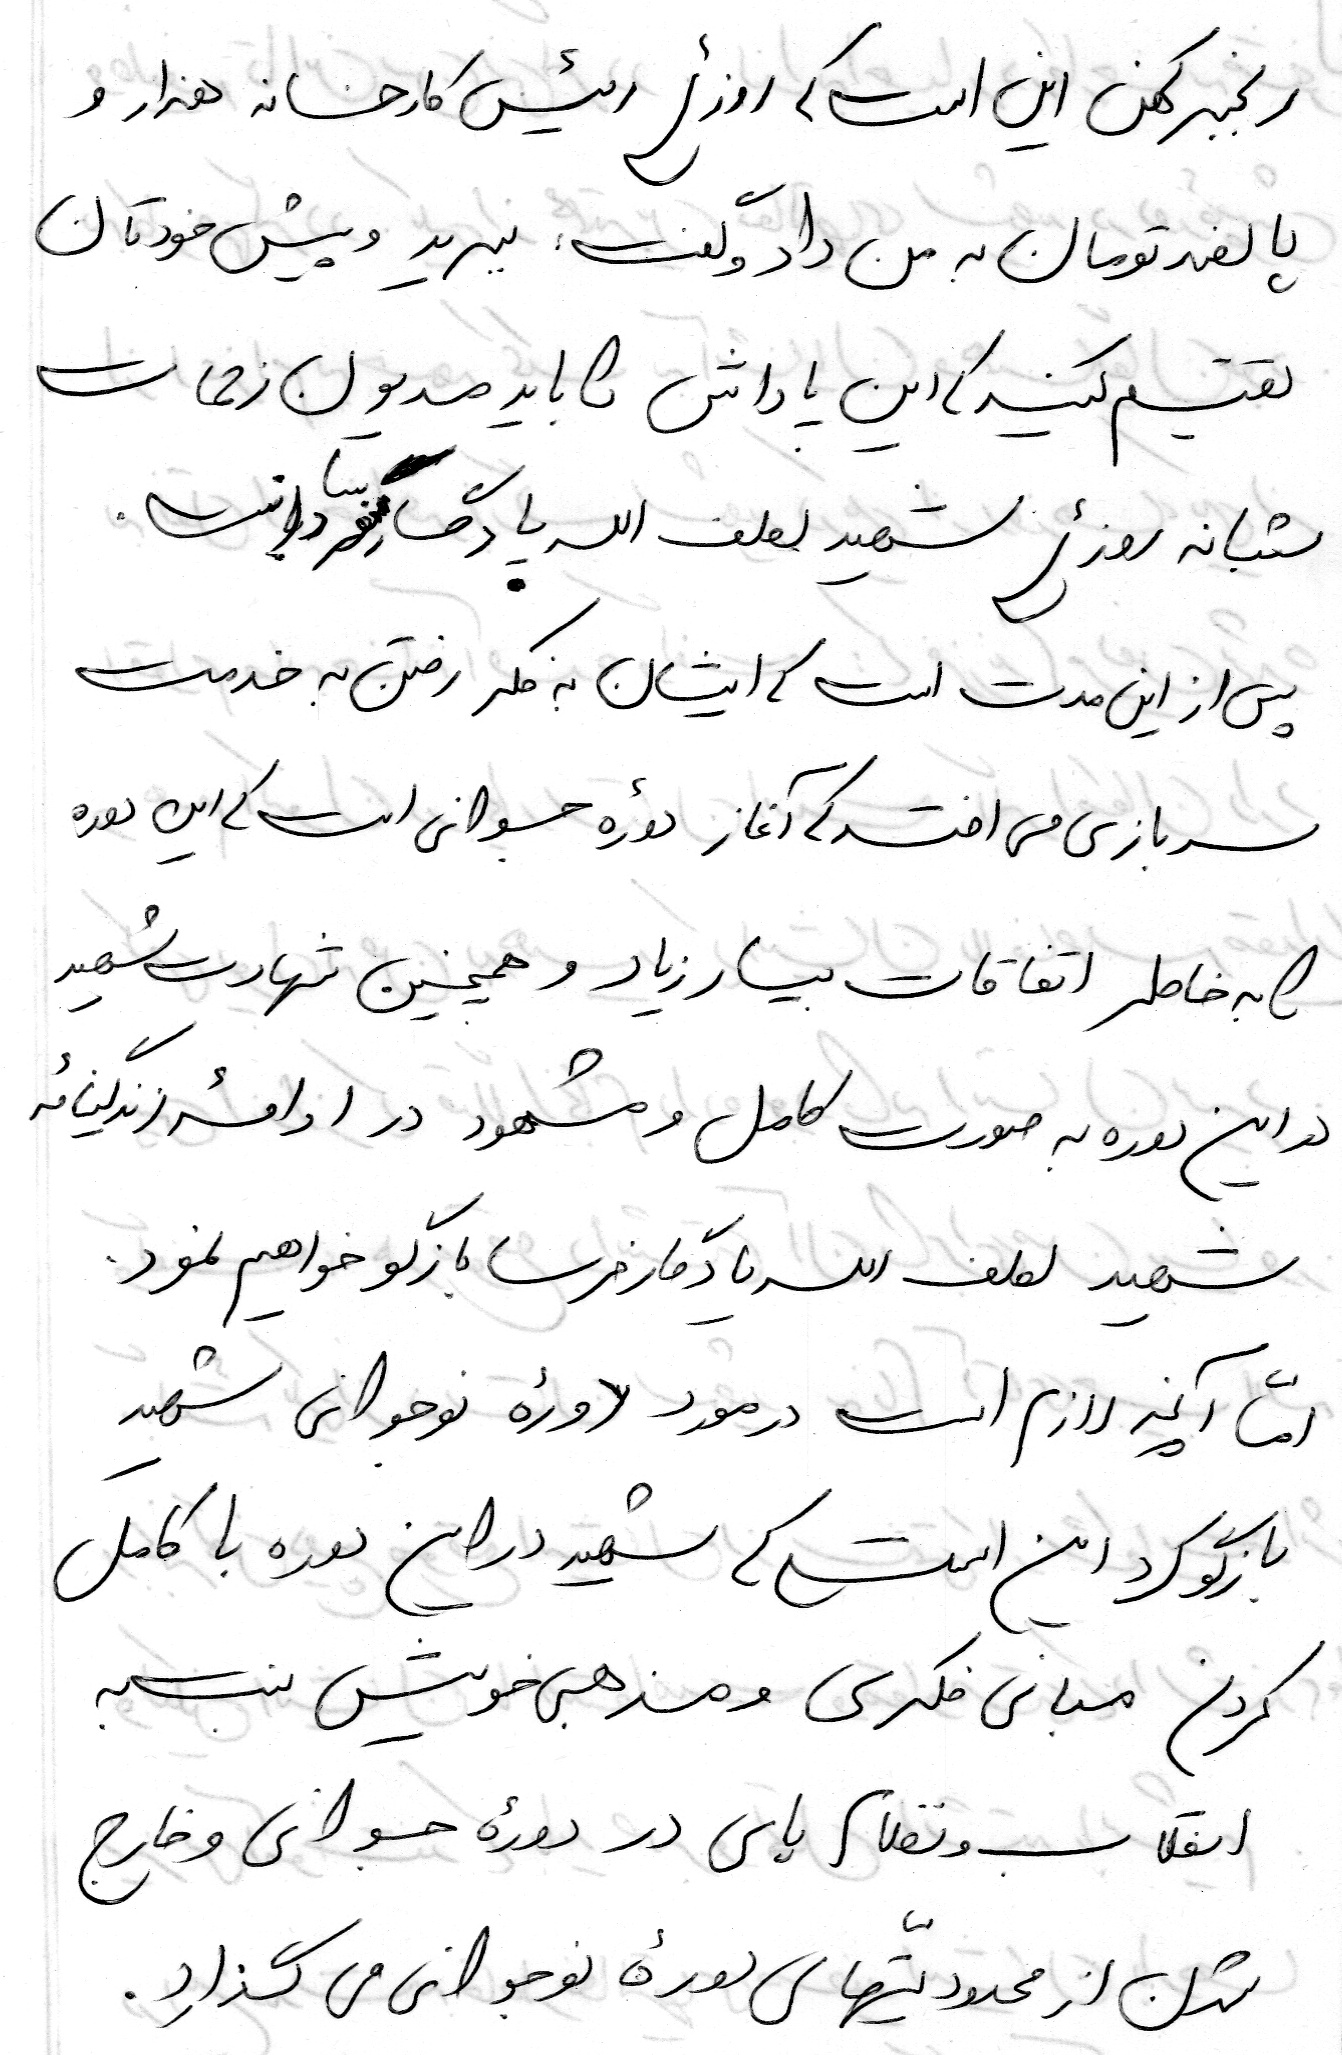 رنجبر کهن این است که روزی رئیس کارخانه هزار و
پانصد تومان به من داد و گفت: ببرید و پیش خودتان
تقسیم کنید که این پاداش را باید مدیون زحمات
شبانه روزی شهید لطف الله یادگار دانست.
پس از این مدت است که ایشان به فکر رفتن به خدمت
سربازی می افتد که آغاز دورۀ جوانی است که این دوره
را به خاطر اتفاقات بسیار زیاد و همچنین شهادت شهید
در این دوره به صورت کامل و مشهود در ادامۀ زندگینامۀ
شهید لطف الله یادگار فرسا بازگو خواهیم نمود.
امّا آنچه لازم است در مورد دورۀ نوجوانی شهید
بازگو کرد این است که شهید در این دوره با کامل
کردن مبانی فکری و مذهبی خویش نسبت به
انقلاب و نظام پای در دورۀ جوانی و خارج
شدن از محدودیّتهای دورۀ نوجوانی می گذارد.